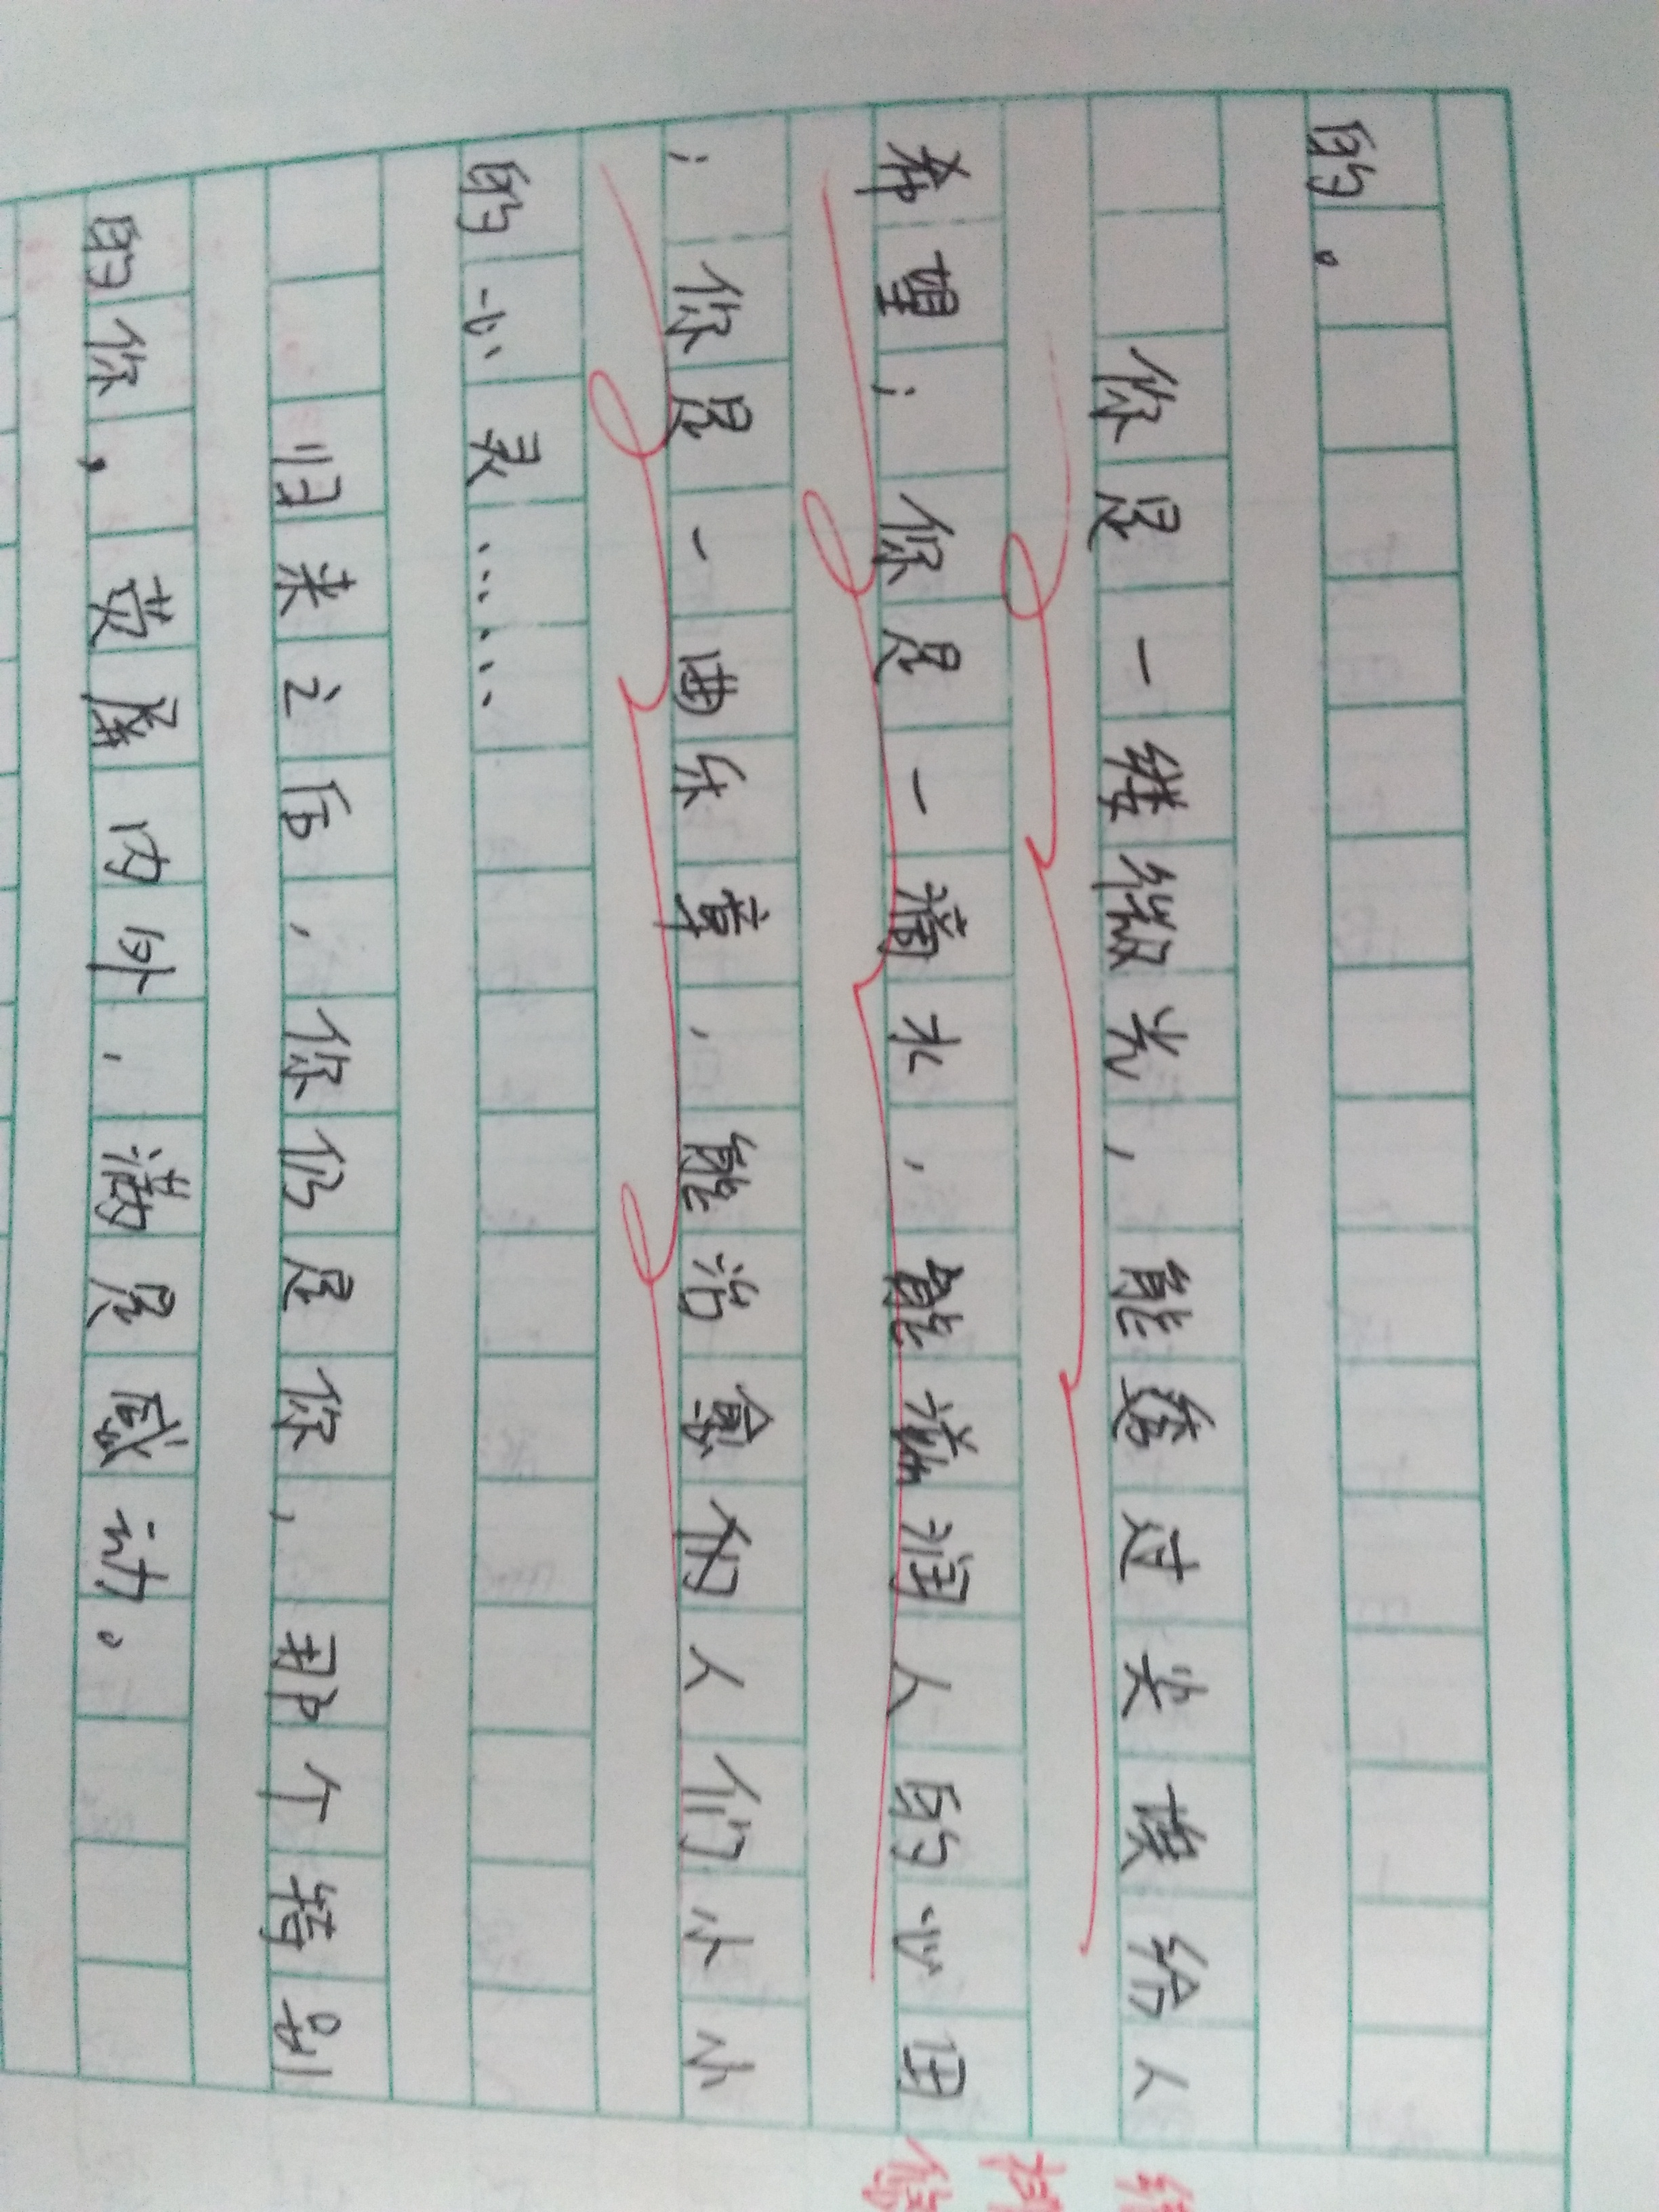 的。
你是一缕微光，能透过尘埃给人
希望；你是一滴水，能滋润人的心田
；你是一曲乐章，能治愈人们小小
的心灵……
归来之后，你仍是你，那个特别
的你，荧屏内外，满是感动。